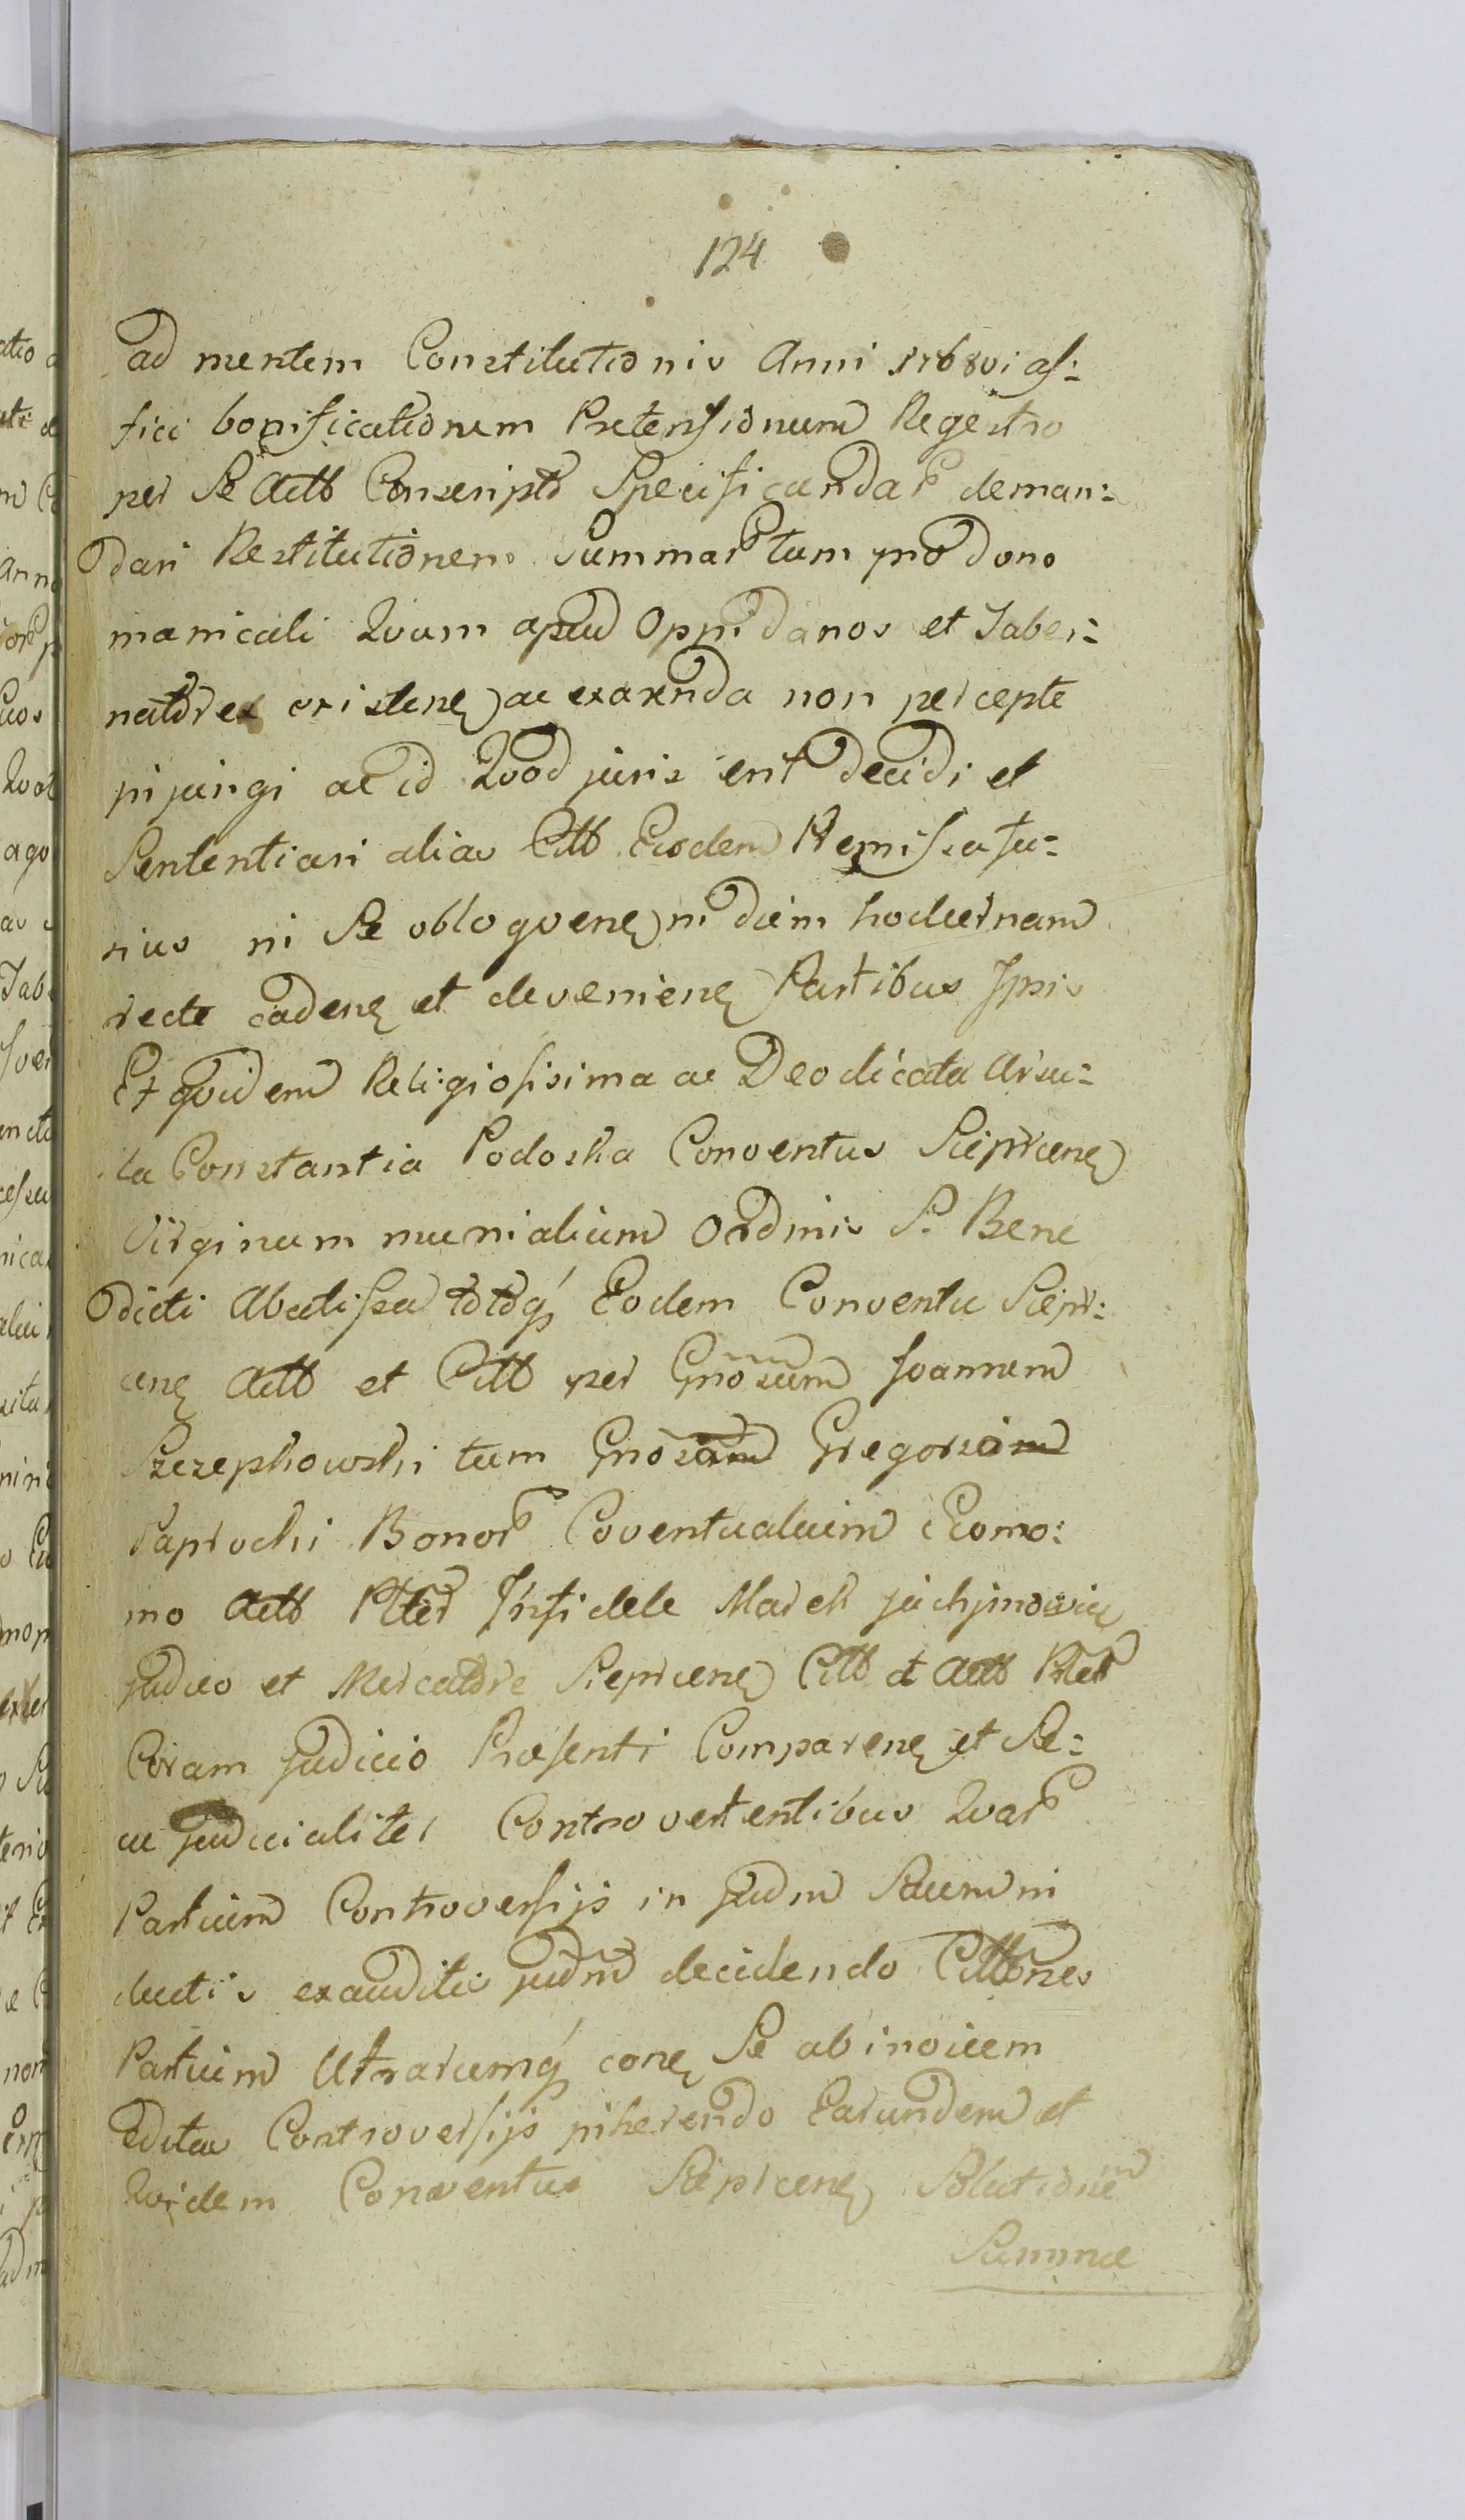 124
ad mentem Constitutionis Anni 1768vi af:
fici bonificationem Prætensionum Regestro
per Se Actb Conscripto Specificandar deman:
dari Restitutionem Summar tum pro dono
manicali Quam apud Oppidanos et Taber:
natores existenę ac exarenda non percepte
injungi ac id Quod juris erit Decidi et
Sententiari alias Citt Eiosdem Remissa fu:
sius in Se obloqvenę in diem hodiernam
recte cadenę et devenienę Partibus Ipsis
Et qvidem Religiosisima ac Deodicata Ursu:
la Constantia Podoska Conventus Sieprcenę
Virginum munialium Ordinis S. Bene
dicti Abatissa totoq́ Eodem Conventu Siepr:
cenę Actb et Citt per Gnosum Joannem
Szczepkowski tum Gnosam Gregoriam
Paprocki Bonor Coventualium Econo:
mo Actb Pter Infidele Marek jachimowicz
Judæo et Mercatore Sieprcenę Citt et Actb Pter
Coram Judicio Præsenti Comparenę et Se:
cu Judicialiter Controvertentibus Quar
Partium Controversijs in Judm Suum in
ductis exauditis Judm decidendo Cittones
Partium Utrarumq́ conę Se abinvicem
Editas Controversijs inherendo Earundem et
Qvidem Conventus Sieprcenę Solutionem
Summæ